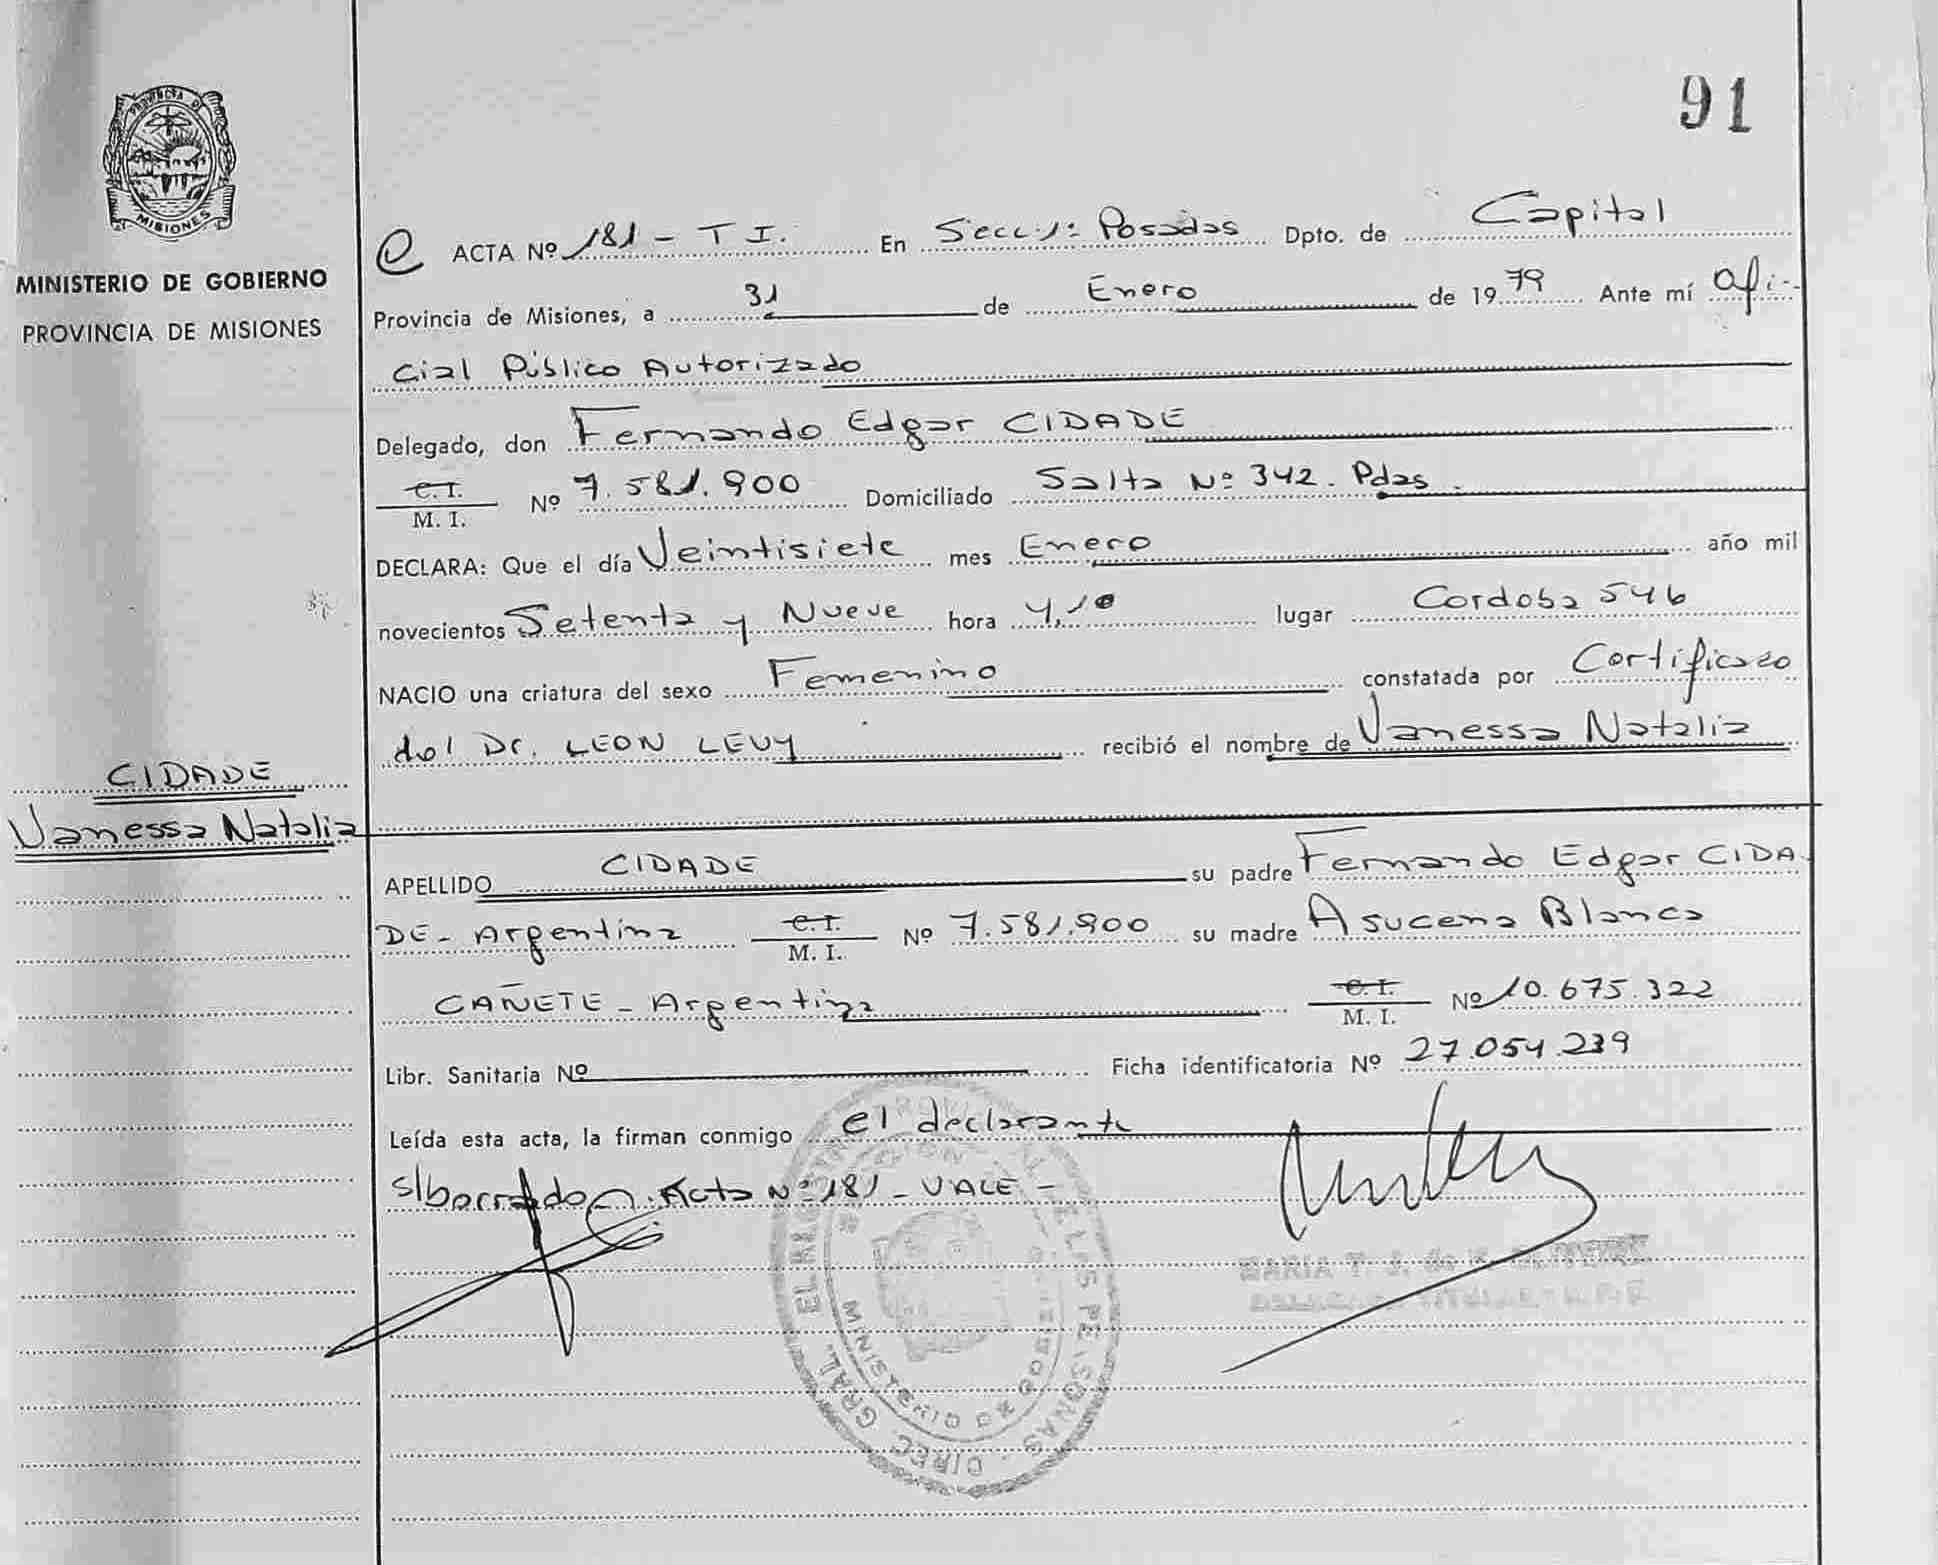 91
PROVINCIA DE
MISIONES
MINISTERIO DE GOBIERNO
PROVINCIA DE MISIONES
ACTA Nº 181 - T I. En Secc 1ª Posadas Dpto. de Capital
Provincia de Misiones, a 31 de Enero de 1979 Ante mí Ofi-
cial Público Autorizado
Delegado, don Fernando Edgar CIDADE
C. I.
M. I. Nº 7.581.900 Domiciliado Salta Nº 342. Pdas.
DECLARA: Que el día Veintisiete mes Enero año mil
novecientos Setenta y Nueve hora 4,10 lugar Cordoba 546
NACIO una criatura del sexo Femenino constatada por Certificado
del Dr. LEON LEVY recibió el nombre de Vanessa Natalia
CIDADE
Vanessa Natalia
APELLIDO CIDADE su padre Fernando Edgar CIDA
DE - Argentina C. I. M. I. Nº 7.581.900 su madre Asucena Blanca
CAÑETE - Argentina C. I. M. I. Nº 10.675.322
Libr. Sanitaria Nº Ficha identificatoria Nº 27.054.239
Leída esta acta, la firman conmigo el declarante
s/borrado. Acta Nº 181 - VALE -
MARIA T. J. de
DIREC. GRAL. DE LAS PERSONAS
MINISTERIO DE GOBIERNO